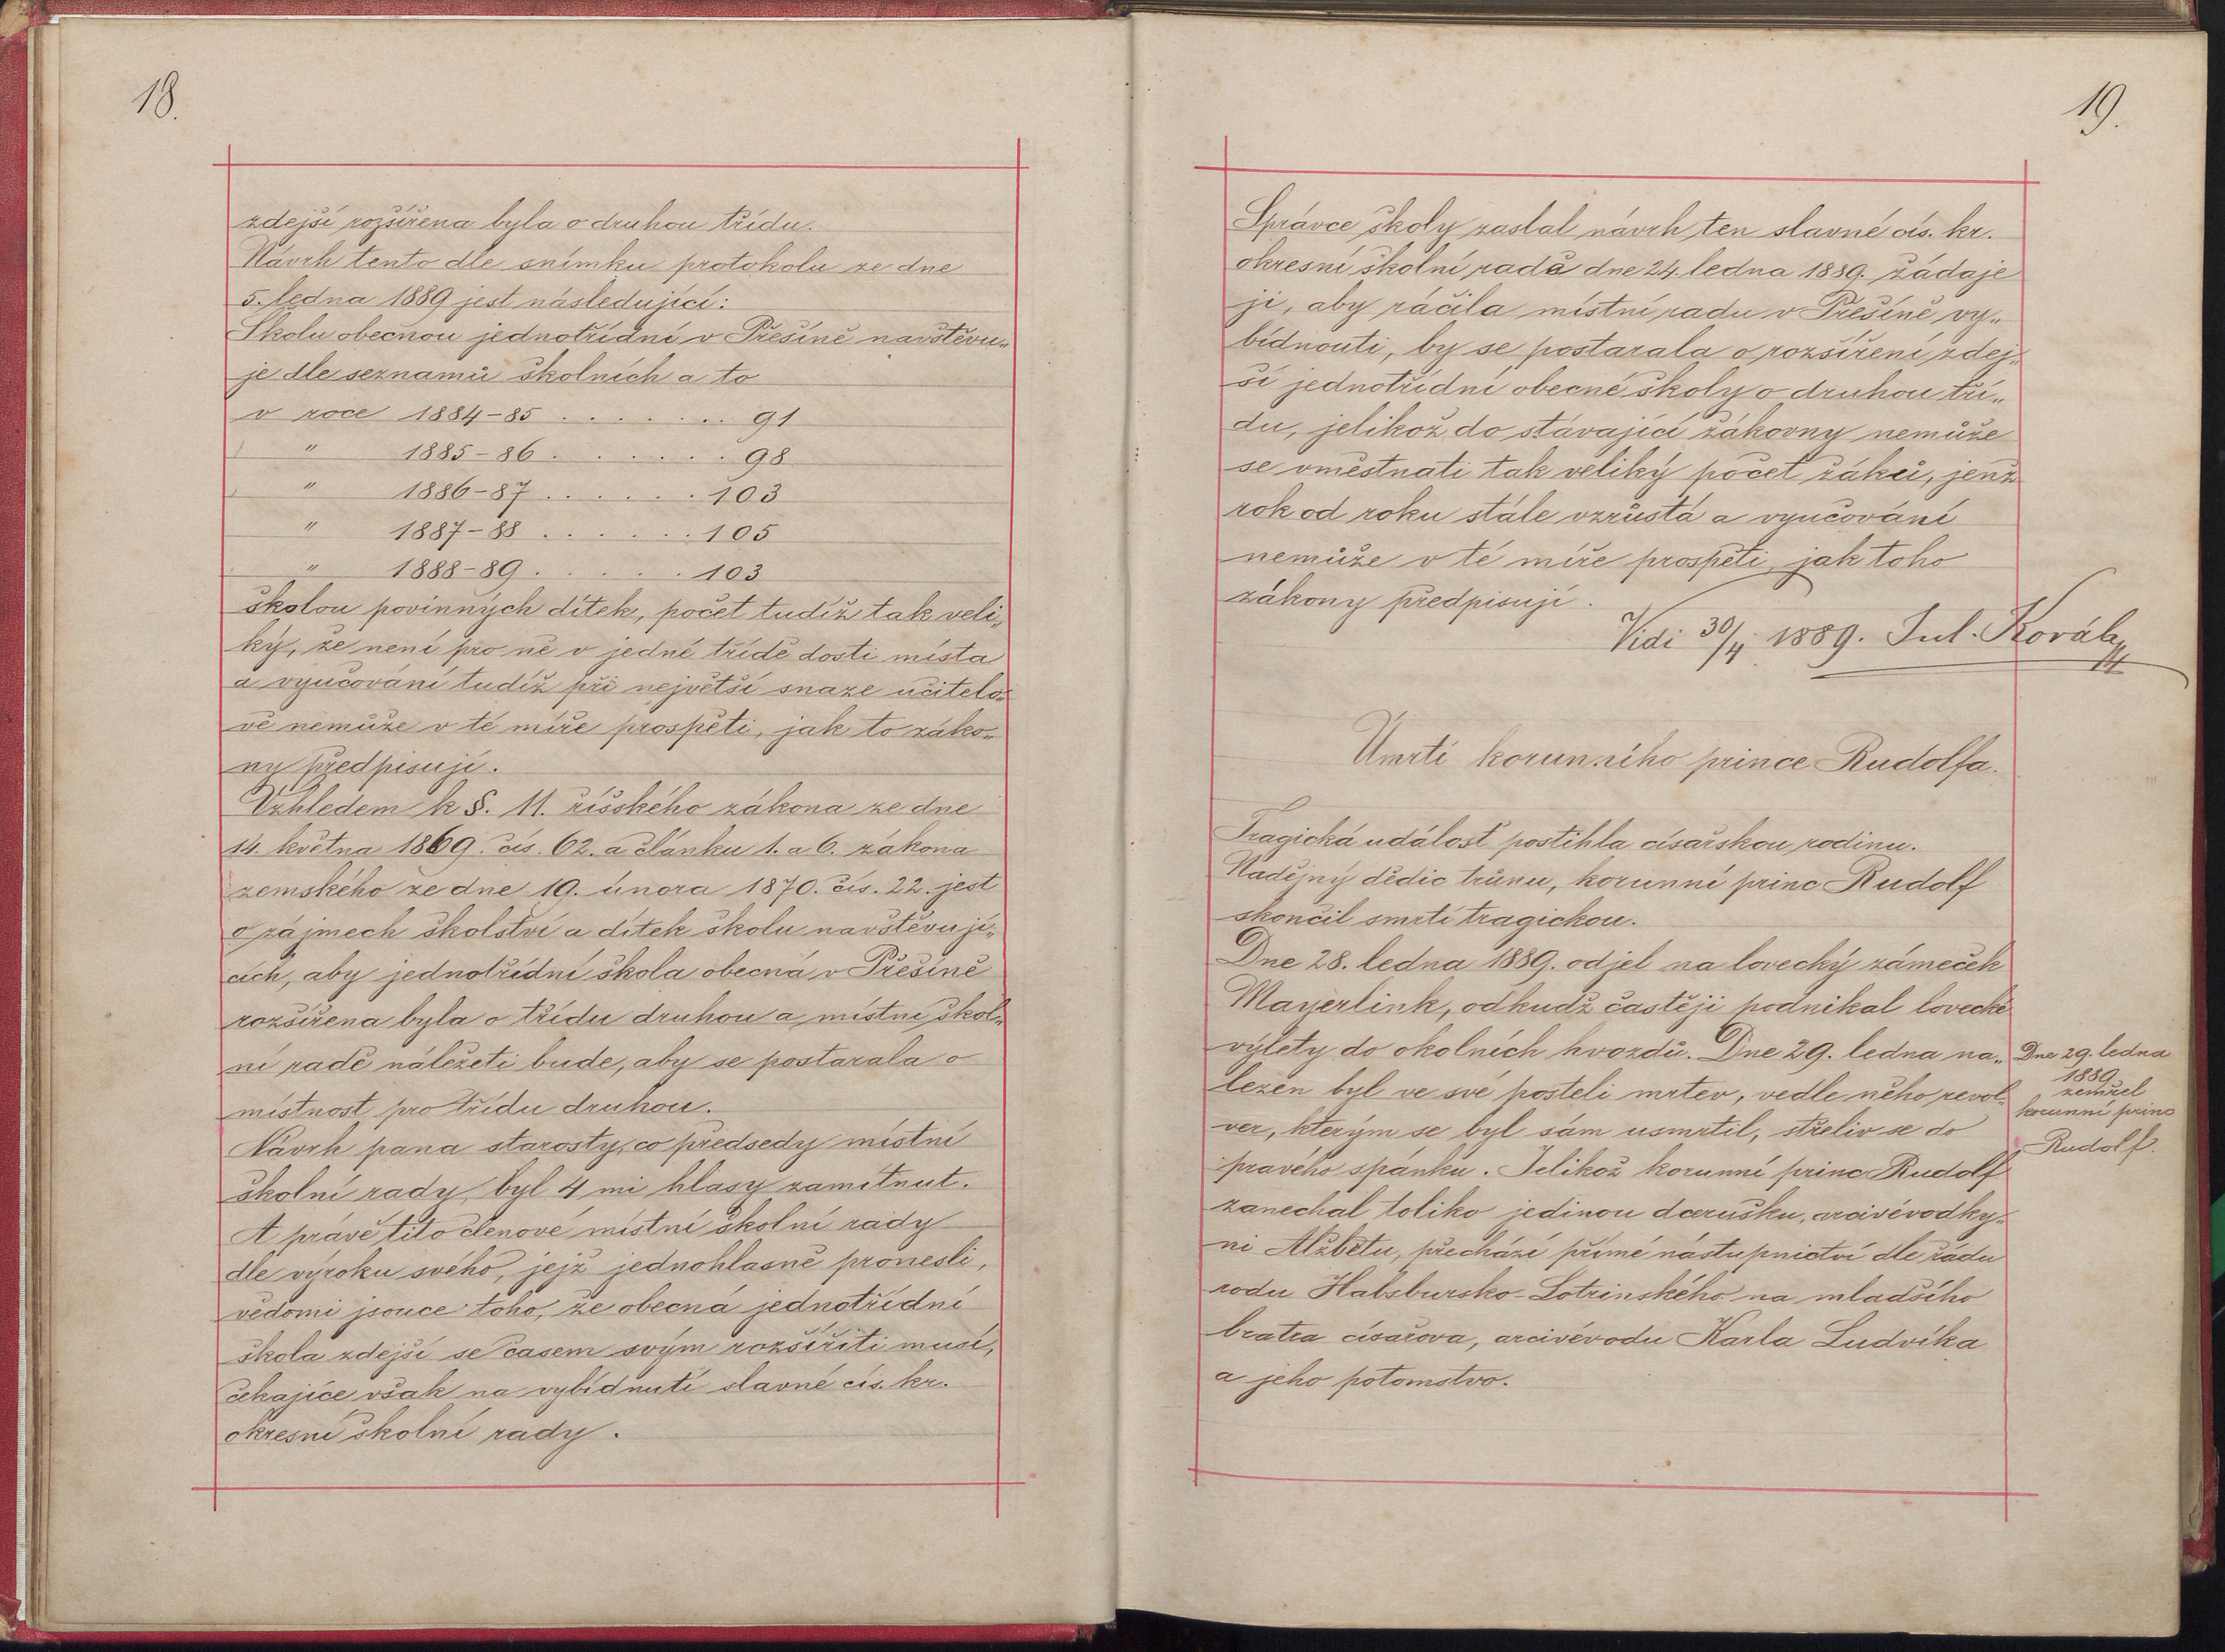 18.
zdejší rozšířena byla o druhou třídu.
Návrh tento dle snímku protokolu ze dne
5. ledna 1889 jest následující:
Školu obecnou jednotřídní v Přešíně navštěvu„
je dle seznamů školních a to
v roce 1884-85 . . . . . . . 91
" 1885-86 . . . . . . . 98
" 1886-87 . . . . . . . 103
" 1887-88 . . . . . . . 105
" 1888-89 . . . . . . 103
školou povinných dítek, počet tudíž tak veli„
ký, že není pro ně v jedné třídě dosti místa
a vyučování tudíž při největší snaze učitelo„
vě nemůže v té míře prospěti, jak to záko„
ny předpisují.
Vzhledem k §. 11. říšského zákona ze dne
14. května 1869. čís. 62. a článku 1. a 6. zákona
zemského ze dne 19. února 1870. čís. 22. jest
v zájmech školství a dítek školu navštěvují„
cích, aby jednotřídní škola obecná v Přešíně
rozšířena byla o třídu druhou a místní škol„
ní radě náležeti bude, aby se postarala o
místnost pro třídu druhou.
Návrh pana starosty, co předsedy místní
školní rady, byl 4 mi hlasy zamítnut.
A právě tito členové místní školní rady
dle výroku svého, jejž jednohlasně pronesli,
vědomi jsouce toho, že obecná jednotřídní
škola zdejší se časem svým rozšířiti musí,
čekajíce však na vybídnutí slavné cís. kr.
okresní školní rady.
19.
Správce školy zaslal návrh ten slavné cís. kr.
okresní školní radě dne 24. ledna 1889. žádaje
ji, aby ráčila místní radu v Přešíně vy„
bídnouti, by se postarala o rozšíření zdej„
ší jednotřídní obecné školy o druhou tří„
du, jelikož do stávající žákovny nemůže
se vměstnati tak veliký počet žáků, jenž
rok od roku stále vzrůstá a vyučování
nemůže v té míře prospěti, jak toho
zákony předpisují.
Vidi 30/4 1889. Jul. Kovály
Úmrtí korunního prince Rudolfa.
Tragická událosť postihla císařskou rodinu.
Nadějný dědic trůnu, korunní princ Rudolf
skončil smrtí tragickou.
Dne 28. ledna 1889. odjel na lovecký zámeček
Mayerlink, odkudž častěji podnikal lovecké
výlety do okolních hvozdů. Dne 29. ledna na„
lezen byl ve své posteli mrtev, vedle něho revol„
ver, kterým se byl sám usmrtil, střeliv se do
pravého spánku. Jelikož korunní princ Rudolf
zanechal toliko jedinou dcerušku, arcivévodky„
ni Alžbětu, přechází přímé nástupnictví dle řádu
rodu Habsbursko-Lotrinského na mladšího
bratra císařova, arcivévodu Karla Ludvíka
a jeho potomstvo.
Dne 29. ledna
1889.
zemřel
korunní princ
Rudolf.